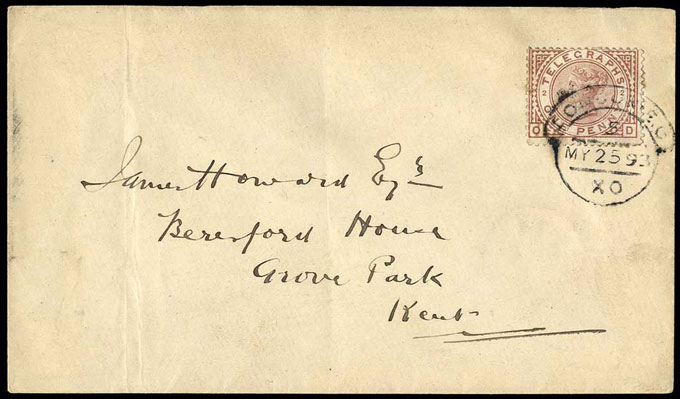 TELEGRAPHS
2 2
O PENN D
5
MY 25 93
XO
James Howard Esqr
Beresford House
Grove Park
Kent